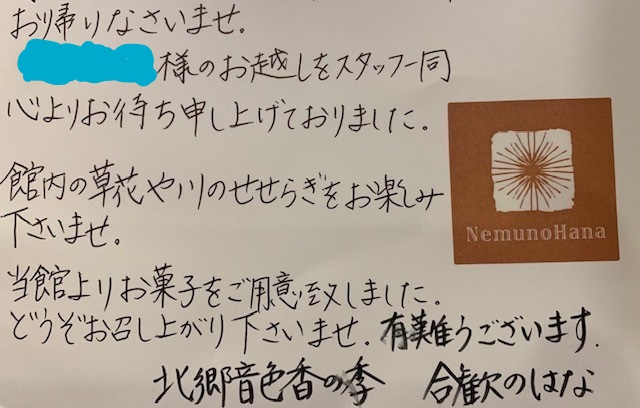 お帰りなさいませ。
様のお越しをスタッフ一同
心よりお待ち申し上げておりました。
館内の草花や川のせせらぎをお楽しみ
下さいませ。
当館よりお菓子をご用意致しました。
どうぞお召し上がり下さいませ。有難うございます。
北郷音色香の季 合歓のはな
NemunoHana